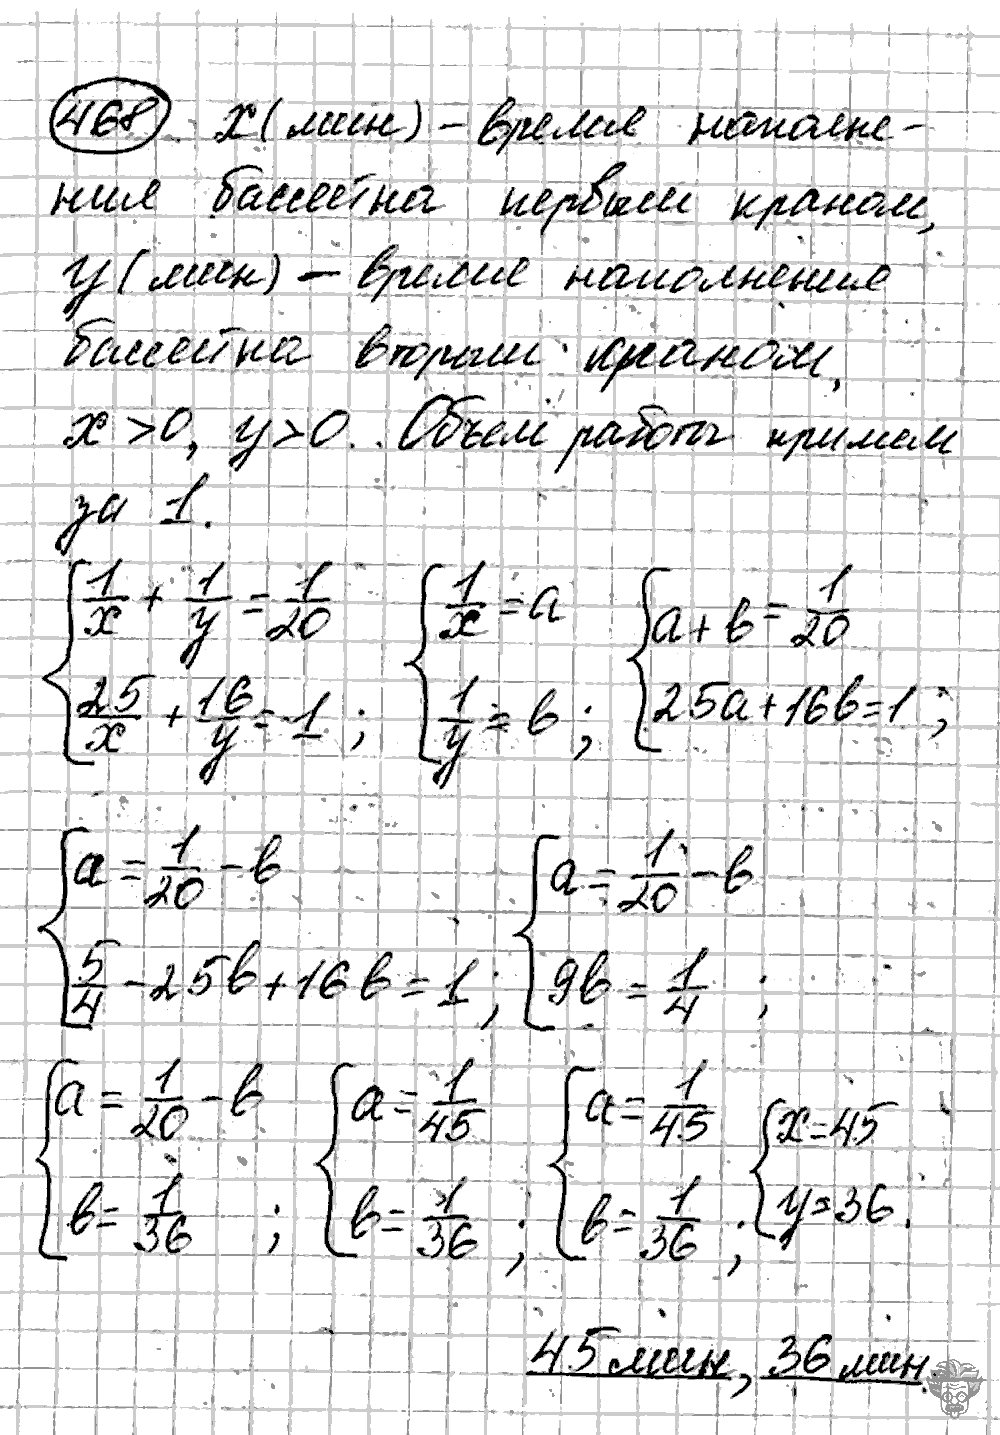 468. x(мин) – время наполне-
ния бассейна первым краном,
y(мин) – время наполнения
бассейна вторым краном,
x>0, y>0. Объем работы примем
за 1.
{1/x + 1/y = 1/20 {1/x = a {a+b = 1/20
25/x + 16/y = 1; 1/y = b; 25a+16b=1;
{a = 1/20 - b {a = 1/20 - b
5/4 - 25b + 16b = 1; 9b = 1/4;
{a = 1/20 - b {a = 1/45 {a = 1/45 {x=45
b = 1/36; b = 1/36; b = 1/36; y=36.
45 мин, 36 мин.